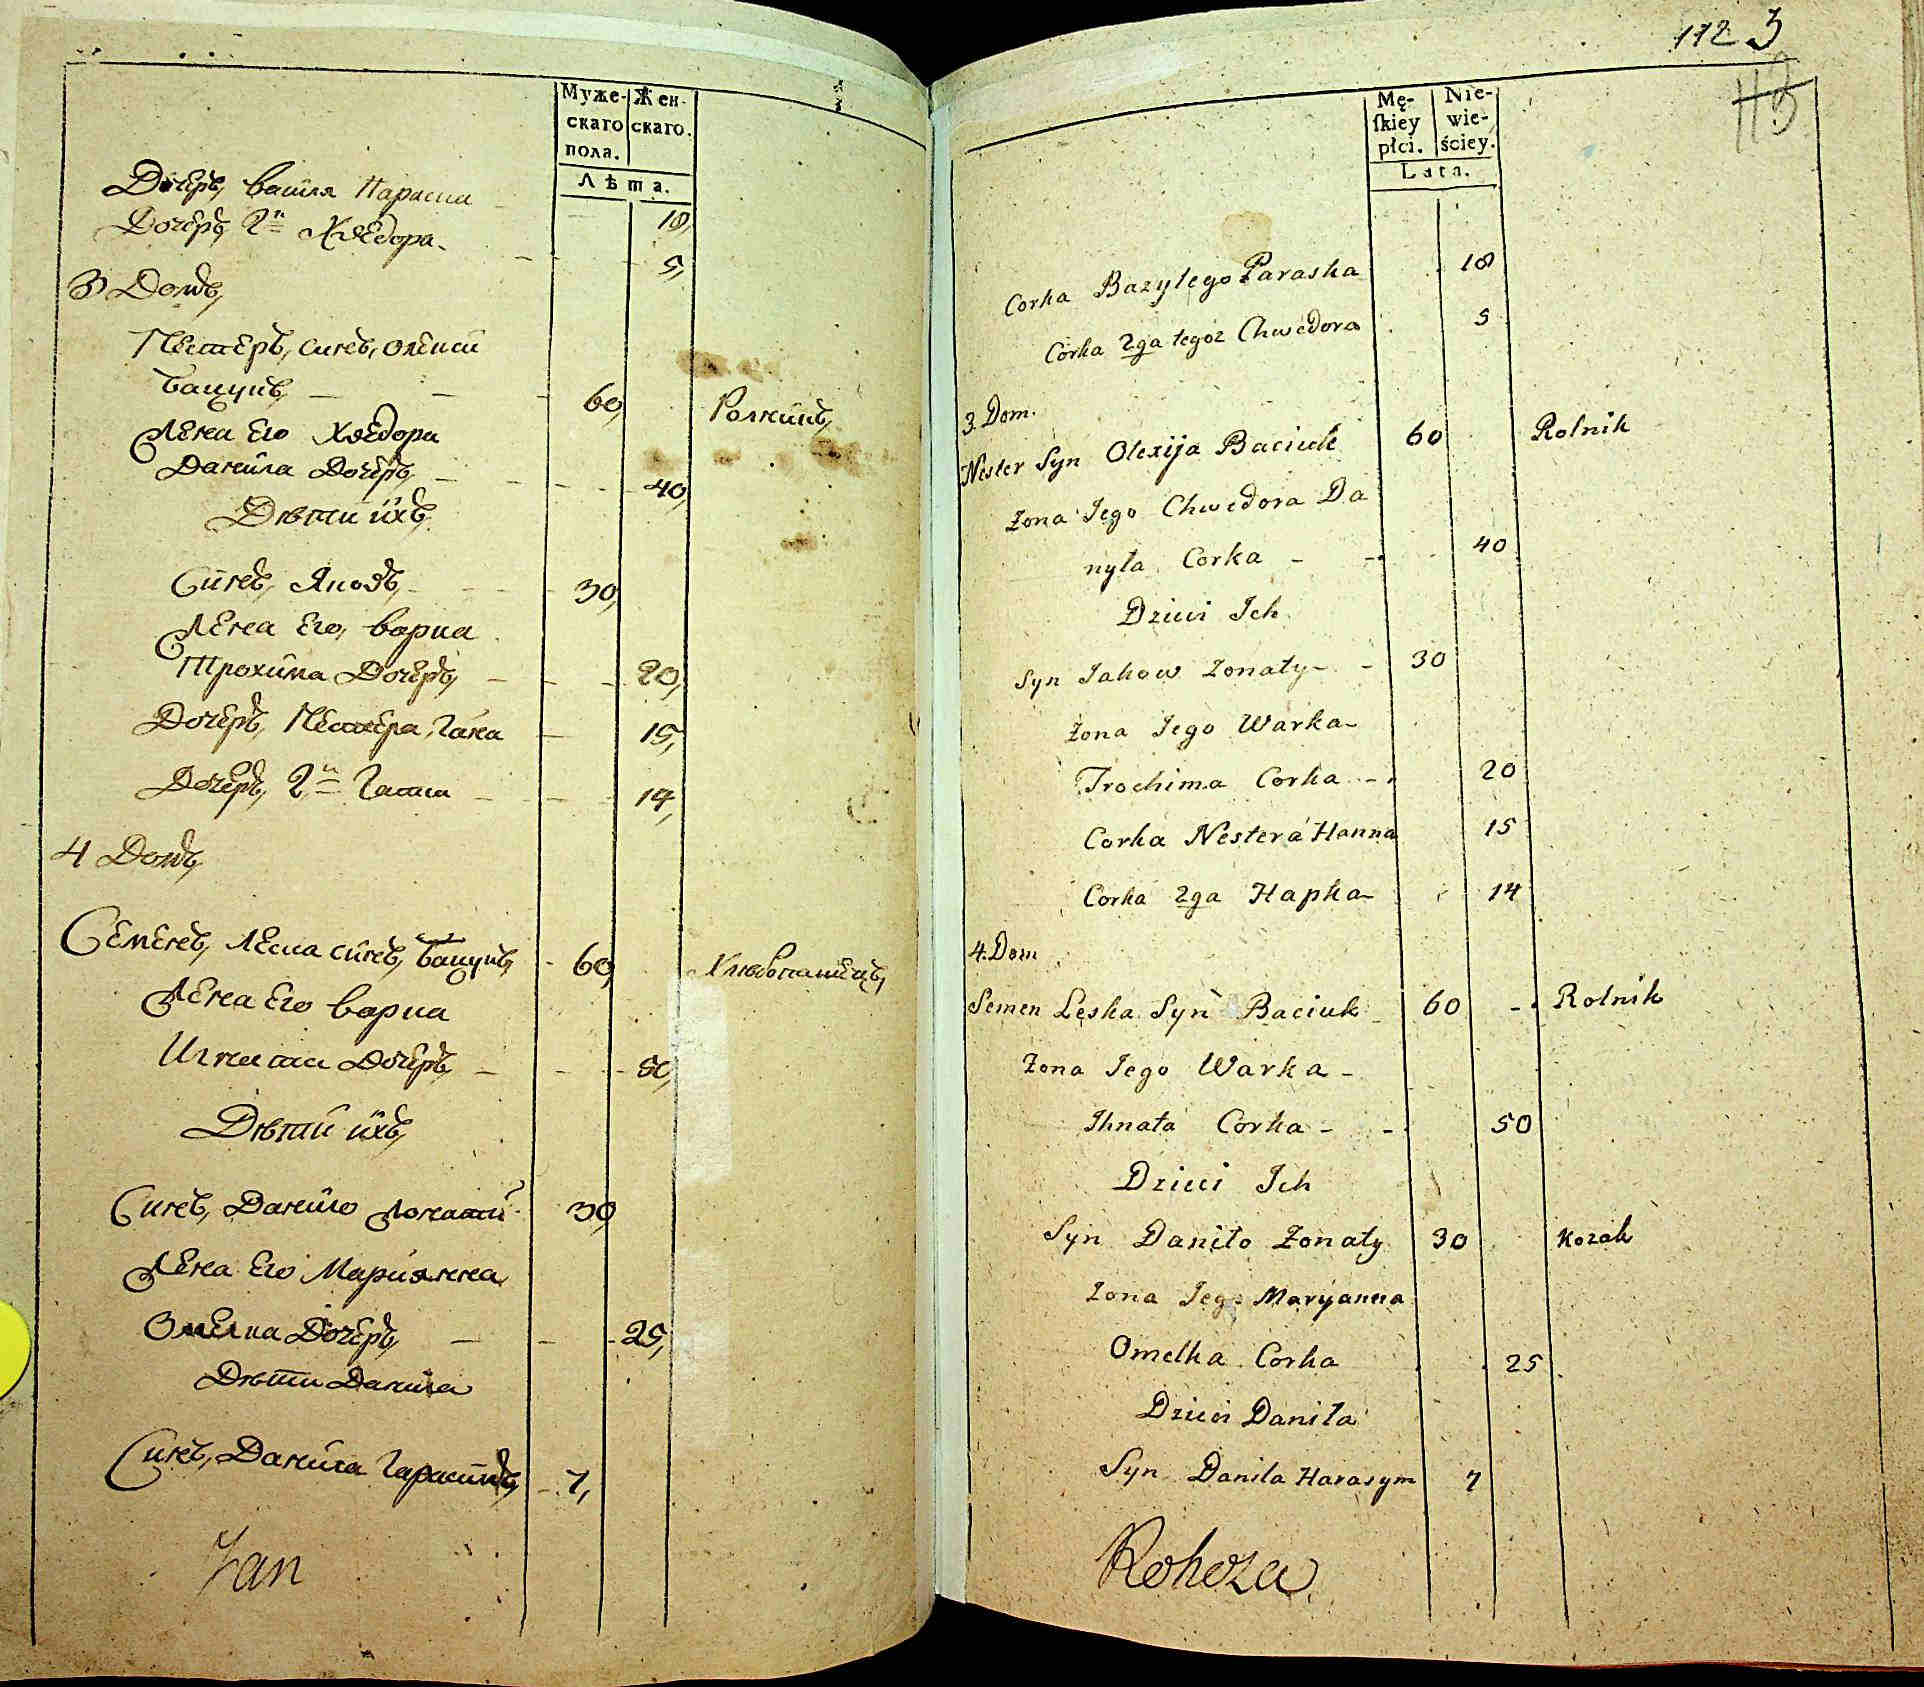 Муже- Жен-
скаго скаго.
пола.
Лѣта.
Дочеръ, васи́ля Параска 18,
Дочеръ, 2я Хведора 5,
3 Домъ,
Нестеръ, синъ, Олекси
Бацукъ, 60, Ролникъ,
Жена Его Хведора
Данила Дочеръ 40,
Дѣти ихъ,
Синъ, Яковъ, 30,
Жена Его, варка
Трохима Дочеръ, 20,
Дочеръ, Нестера, Гана 15,
Дочеръ, 2я Гапка 14,
4 Домъ,
Семенъ, Леска синъ, Бацукъ, 60, Хлебопашецъ,
Жена Его варка
Игната Дочеръ, 50,
Дѣти ихъ,
Синъ, Данило жонати 30,
Жена Его Мариянна
Омелка Дочеръ, 25,
Дѣти Данила
Синъ, Данила Гарасимъ, 7,
Jan
112 3
113
Mę- Nie-
ſkiey wie-
płci. ściey.
Lata.
Corka Bazylego Paraska 18
Corka 2ga tegoz Chwedora 5
3. Dom.
Nester Syn Olexija Baciuk 60 Rolnik
Zona Jego Chwedora Da
nyła Corka 40
Dzieci Ich
Syn Jakow Zonaty 30
Zona Jego Warka
Trochima Corka 20
Corka Nestera Hanna 15
Corka 2ga Hapka 14
4. Dom
Semen Leska Syn Baciuk 60 Rolnik
Zona Jego Warka
Ihnata Corka 50
Dzieci Ich
Syn Daniło Zonaty 30 Kozak
Zona Jego Maryanna
Omelka Corka 25
Dzieci Daniła
Syn Daniła Harasym 7
Rohoza